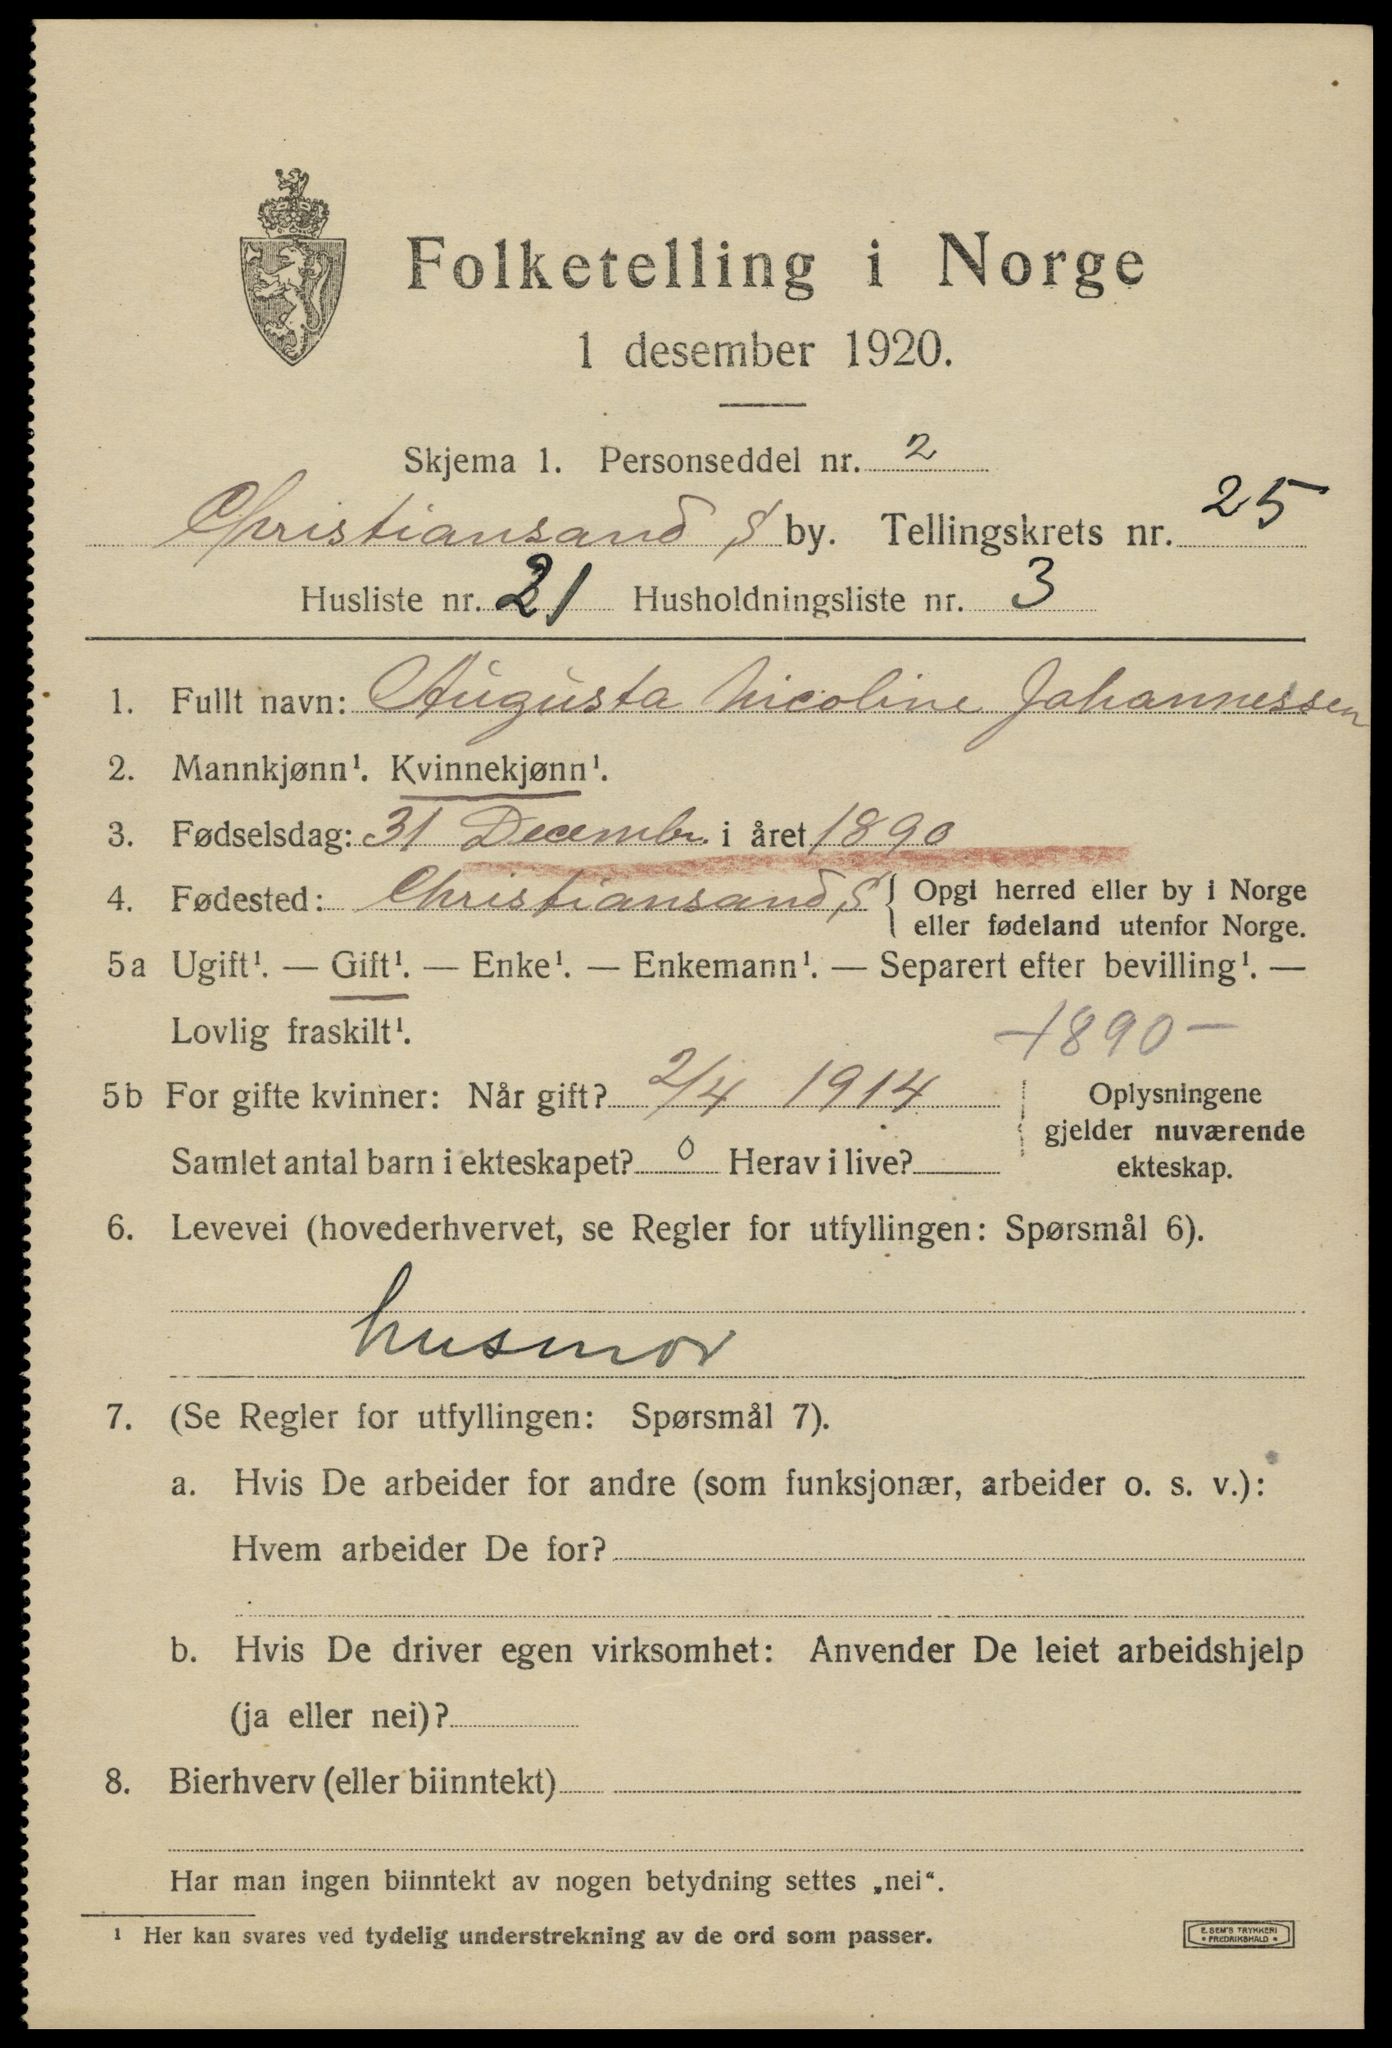 Folketelling i Norge
1 desember 1920.
Skjema 1. Personseddel nr. 2
Christiansand S by. Tellingskrets nr. 25
Husliste nr. 21 Husholdningsliste nr. 3
1. Fullt navn: Augusta Nicoline Johannessen
2. Mannkjønn¹. Kvinnekjønn¹.
3. Fødselsdag: 31 Decembr. i året 1890
4. Fødested: Christiansand S { Opgi herred eller by i Norge
eller fødeland utenfor Norge.
5a Ugift¹. — Gift¹. — Enke¹. — Enkemann¹. — Separert efter bevilling¹. —
Lovlig fraskilt¹.
-1890-
5b For gifte kvinner: Når gift? 2/4 1914
Samlet antal barn i ekteskapet? 0 Herav i live?
Oplysningene
gjelder nuværende
ekteskap.
6. Levevei (hovederhvervet, se Regler for utfyllingen: Spørsmål 6).
husmor
7. (Se Regler for utfyllingen: Spørsmål 7).
a. Hvis De arbeider for andre (som funksjonær, arbeider o. s. v.):
Hvem arbeider De for?
b. Hvis De driver egen virksomhet: Anvender De leiet arbeidshjelp
(ja eller nei)?
8. Bierhverv (eller biinntekt)
Har man ingen biinntekt av nogen betydning settes „nei“.
¹ Her kan svares ved tydelig understrekning av de ord som passer.
E. SEM'S TRYKKERI
• FREDRIKSHALD •